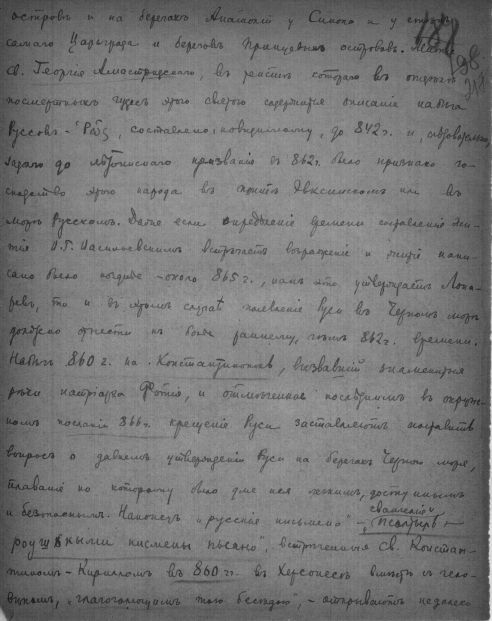 острововъ и на берегахъ Анатоліи у Синопа и у стѣнъ
самаго Царьграда и береговъ Принцевыхъ острововъ. Житіе
181
198
св. Георгія Амастридскаго, въ которого въ
посмертныхъ чудесъ этого святого содержится описаніе набѣга
Руссовъ - Ῥῶς, составлено, повидимому, до 842 г. и, слѣдовательно,
задолго до лѣтописнаго призванія въ 862 г. было признано го-
сподство этого народа въ Понтѣ Эвксинскомъ или въ
морѣ Русскомъ. Даже если опредѣленіе времени составленія Жи-
тія В.Г. Васильевскимъ встрѣчаетъ возраженіе и житіе напи-
сано было позднѣе - около 865 г., какъ это утверждаетъ Лопа-
ревъ, то и въ этомъ случаѣ появленіе Руси въ Черномъ морѣ
должно отнести къ болѣе раннему, чѣмъ 862 г. времени.
Набѣгъ 860 г. на Константинополь, вызвавшій знаменитыя
рѣчи патріарха Фотія, и отмѣченное послѣднимъ въ окруж-
номъ посланіи 866 г. крещеніе Руси заставляютъ поставить
вопросъ о давнемъ утвержденіи Руси на берегахъ Чернаго моря,
плаваніе по которому было для нея легкимъ, доступнымъ
и безопаснымъ. Наконецъ "русскіе письмена" - евангеліе и псалтырь -
роушкыми письмены писано", встрѣченныя Св. Констан-
тиномъ - Кирилломъ въ 860 гг. въ Херсонесѣ вмѣстѣ съ чело-
вѣкомъ, "глаголющимъ тою бесѣдою", - открываютъ недалеко